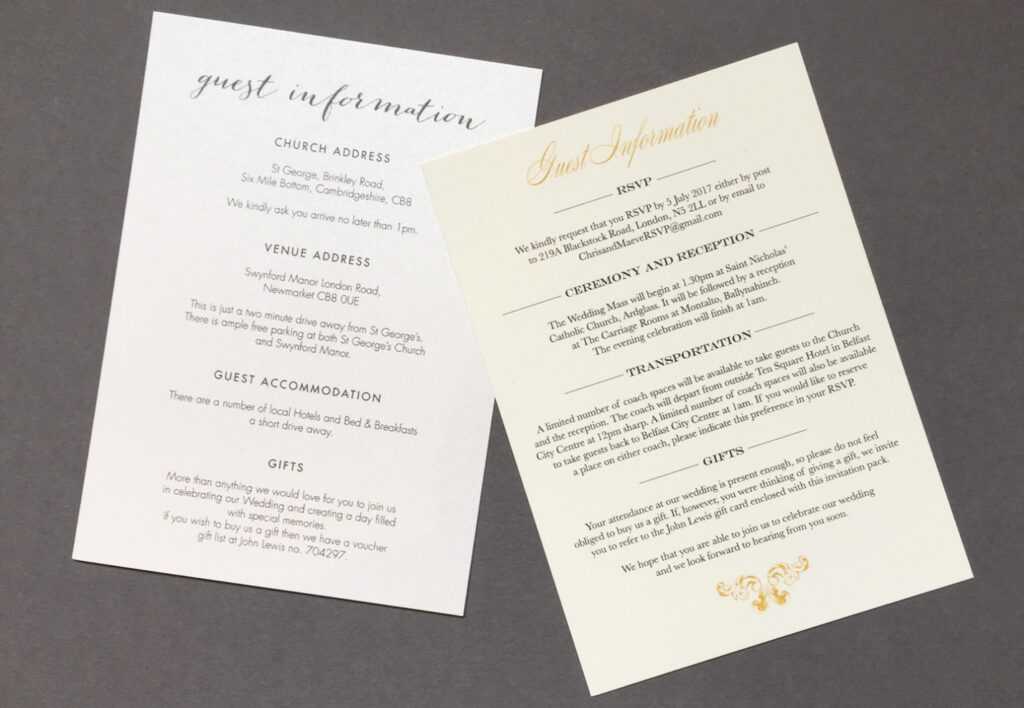 guest information
CHURCH ADDRESS
St George, Brinkley Road,
Six Mile Bottom, Cambridgeshire, CB8
We kindly ask you arrive no later than 1pm.
VENUE ADDRESS
Swynford Manor London Road,
Newmarket CB8 0UE
This is just a two minute drive away from St George's.
There is ample free parking at both St George's Church
and Swynford Manor.
GUEST ACCOMMODATION
There are a number of local Hotels and Bed & Breakfasts
a short drive away.
GIFTS
More than anything we would love for you to join us
in celebrating our Wedding and creating a day filled
with special memories.
if you wish to buy us a gift then we have a voucher
gift list at John Lewis no. 704297.
Guest Information
RSVP
We kindly request that you RSVP by 5 July 2017 either by post
to 219A Blackstock Road, London, N5 2LL or by email to
ChrisandMaeveRSVP@gmail.com
CEREMONY AND RECEPTION
The Wedding Mass will begin at 1.30pm at Saint Nicholas'
Catholic Church, Ardglass. It will be followed by a reception
at The Carriage Rooms at Montalto, Ballynahinch.
The evening celebration will finish at 1am.
TRANSPORTATION
A limited number of coach spaces will be available to take guests to the Church
and the reception. The coach will depart from outside Ten Square Hotel in Belfast
City Centre at 12pm sharp. A limited number of coach spaces will also be available
to take guests back to Belfast City Centre at 1am. If you would like to reserve
a place on either coach, please indicate this preference in your RSVP.
GIFTS
Your attendance at our wedding is present enough, so please do not feel
obliged to buy us a gift. If, however, you were thinking of giving a gift, we invite
you to refer to the John Lewis gift card enclosed with this invitation pack.
We hope that you are able to join us to celebrate our wedding
and we look forward to hearing from you soon.